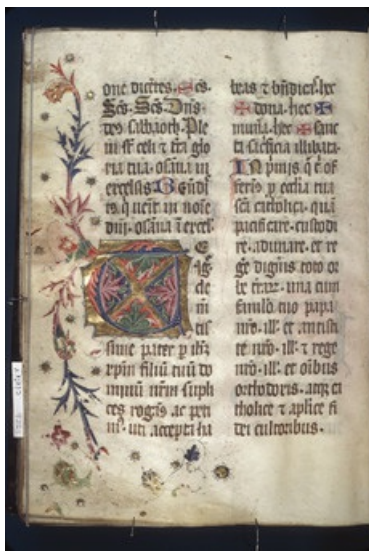 one dicētes. Scs.
Scs. Scs Dn̄s
des sabaoth. Ple
ni sūt celi ⁊ tr̄a glo
ria tua. osāna in
excelsis. B̄n̄di
ct⁹ q̄ uenit in noīe
dnī. osāna ī excel.
TE
ig̅
cle
m̄
tis
sime pater p ih̄m
xp̄m filiū tuū do
minū nr̄m supli
ces rogam⁹ ac peti
m⁹. uti accepta ha
beas ⁊ bn̄dicas. hec
✠ dona. hec ✠
mun̄a. hec ✠ sanc
ta sac̄ficia illibata.
In p̄mis q̄ t̄ of
ferim⁹ p̄ ecc̄ia tua
sc̄a catholica. quā
pacificare. custodi
re. adunare. et re
ge digneris toto or
be trāꝝ. una cum
famulo tuo papa
nr̄o. ill. et antisti
te nr̄o. ill. ⁊ rege
nr̄o. ill. et oībus
orthodoxis. atq; ca
tholice ⁊ ap̄lice fi
dei cultoribus.